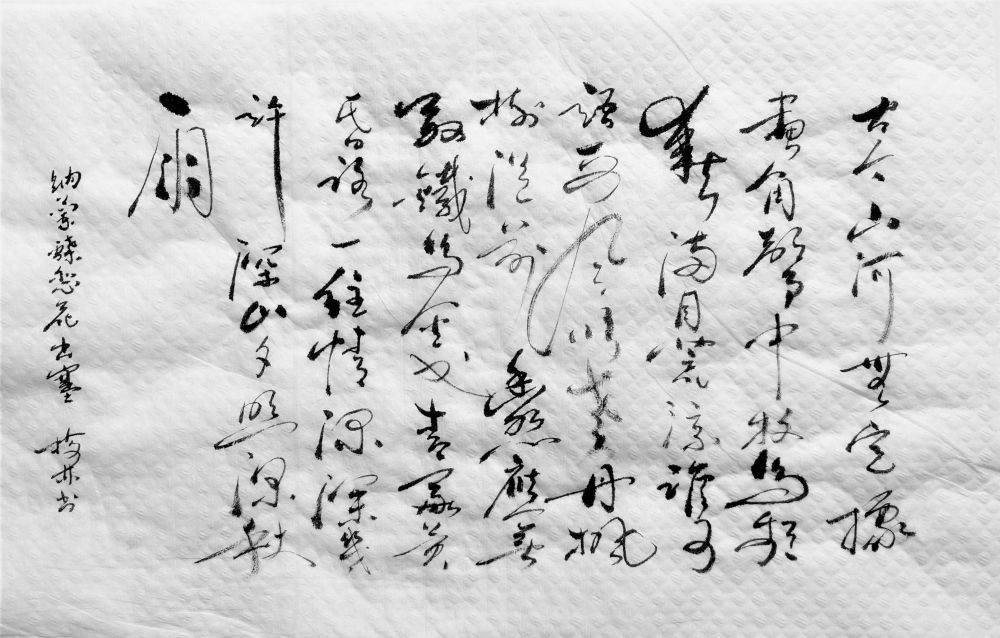 古今山河無定據
畫角聲中牧馬頻
來去滿目荒涼誰可
語西風吹老丹楓
樹從前幽怨應無
數鐵馬金戈青冢黃
昏路一往情深深幾
許深山夕照深秋
雨
納蘭蝶戀花出塞 书